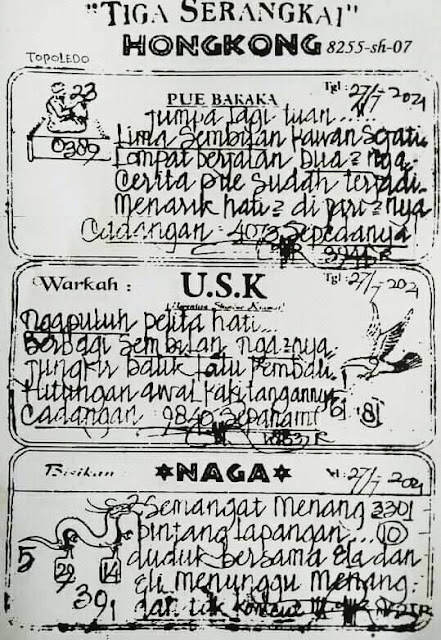 "TIGA SERANGKAI"
HONGKONG 8255-sh-07
TOPOLEDO
23
0389
PUE BAKAKA
Tgl : 27/7 2021
Jumpa lagi tuan......
Lima Sembilan kawan Sejati.
Lompat berjalan Dua2 nga.
Cerita pue Sudah terjadi.
Menarik hati2 di jari2nya
Cadangan : 4073 Sepedanya
Warkah :
U.S.K
Tgl : 27/7 2021
Ngapuluh pelita hati...
Berbagi Sembilan nga2nya.
Jungkir balik lalu kembali.
Hitungan awal kaki tangannya.
Cadangan 9840 Sepahami
61
81
Bisikan
NAGA
27/7 2021
Semangat Menang 3301
bintang lapangan... 10
duduk bersama Ela dan
Eli menunggu Menang.
5
29
14
39